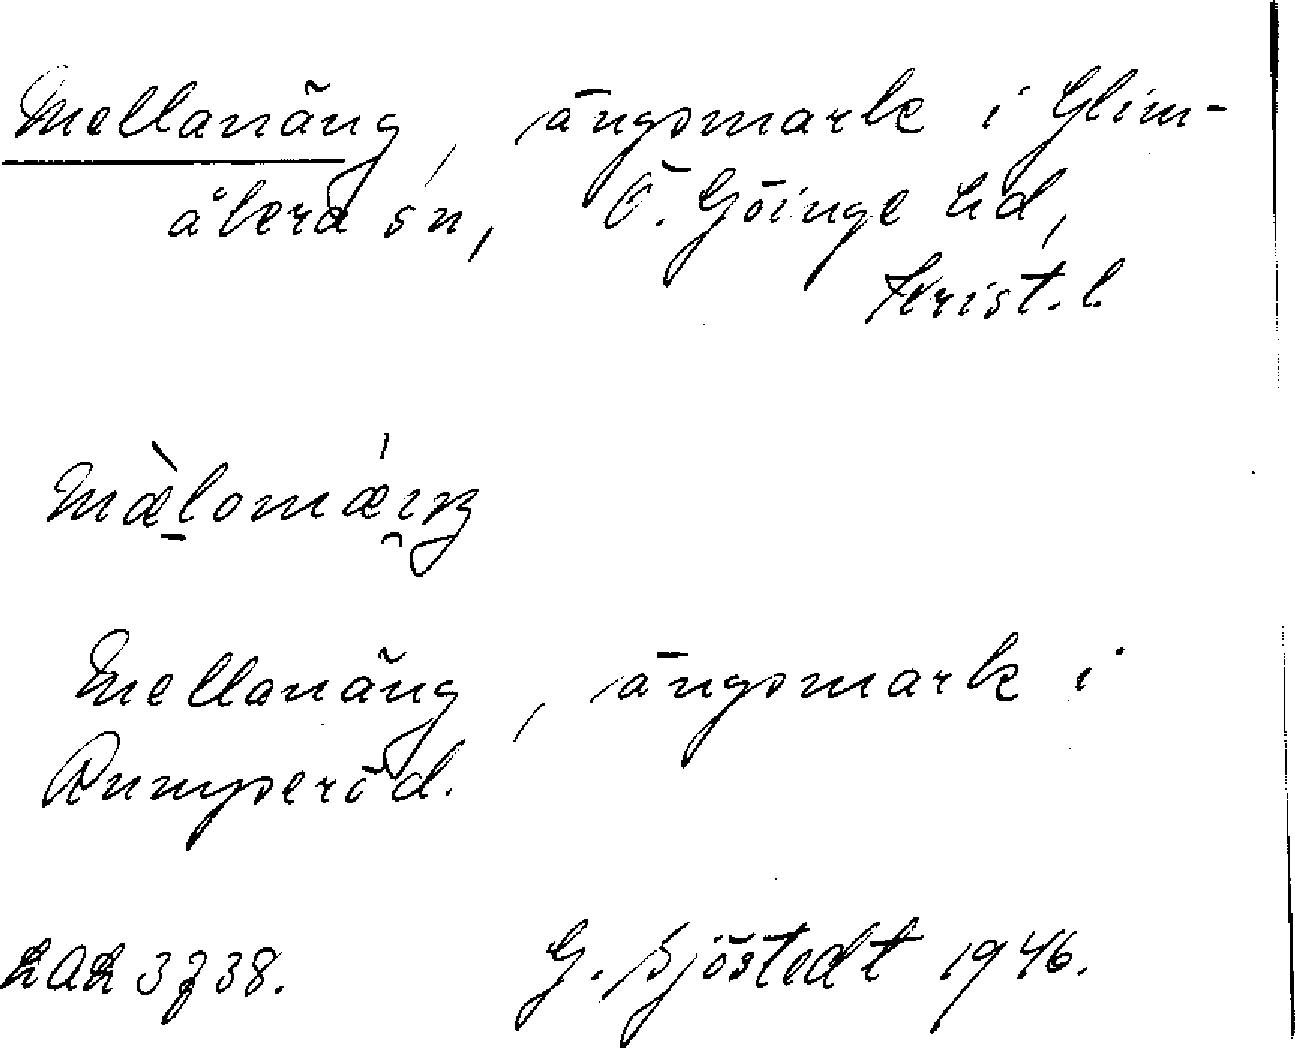 Mellanäng, ängsmark i Glim-
åkra sn, Ö. Göinge hd,
Krist. l.
Mellanäng, ängsmark i
Rumperöd.
LAL 3738. G. Sjöstedt 1946.